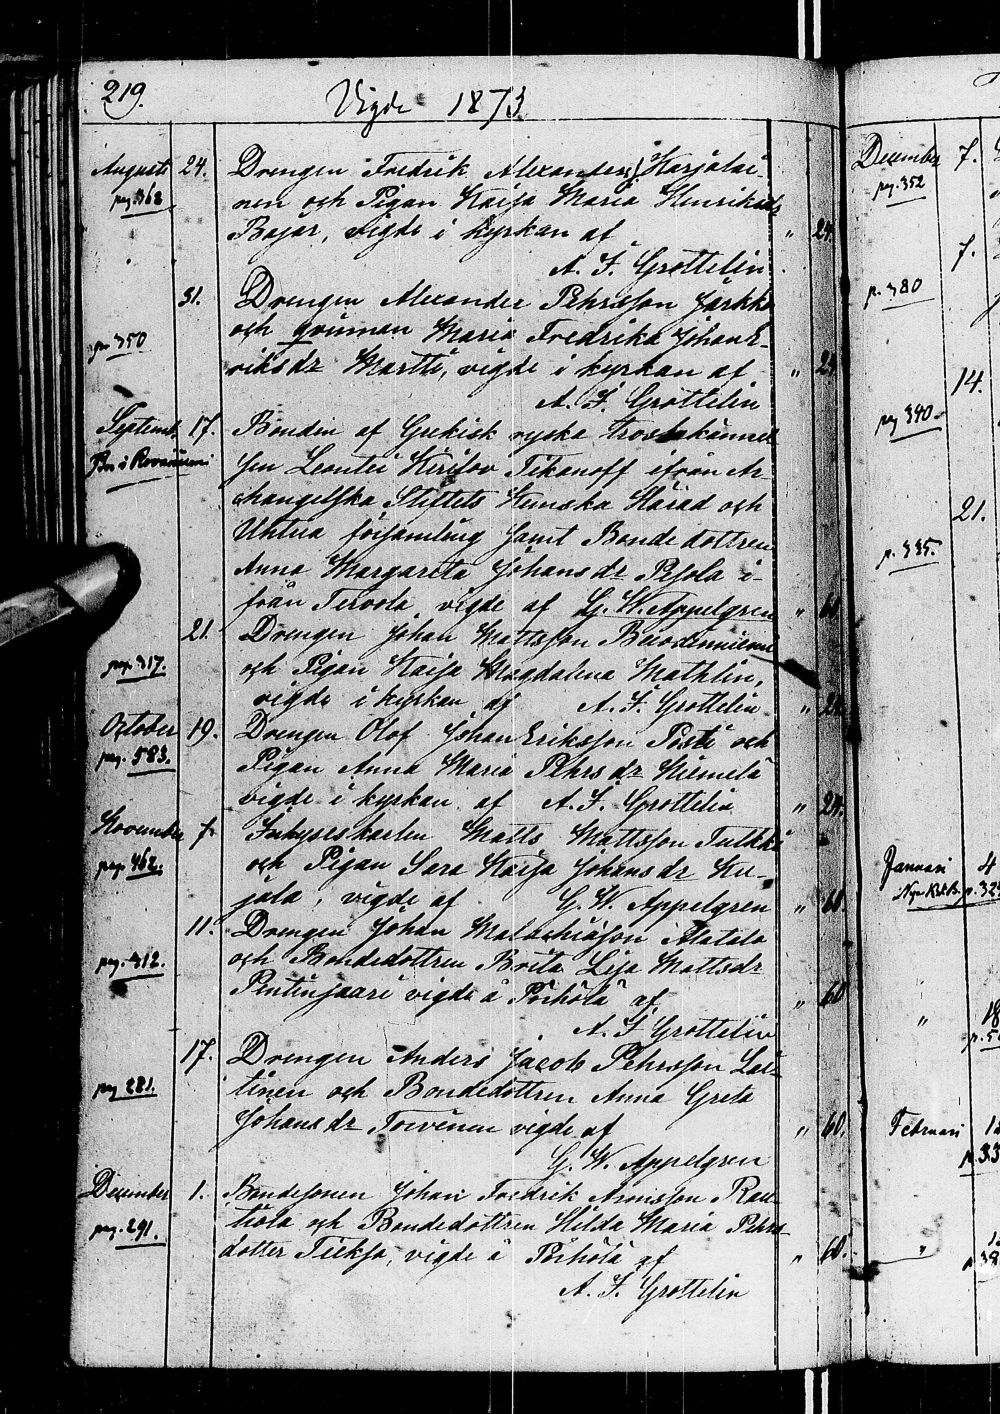 219.
Vigde 1873
Augusti 24. Drengen Fredrik Alexanders Karjalai-
pag. 368 nen och Pigan Kaija Maria Henriksdr
Bajar, vigde i kyrkan af " 24.
A. F. Grottelin
31. Drengen Alexander Pehrsson Jarkko
och qvinnan Maria Fredrika Johan E-
p. 350
riksdr Martti, vigde i kyrkan af " 24
A. F. Grottelin
Septemb. 17. Bonden af Grekisk ryska trosbekännel
Bor i Rovaniemi
sen Leontei Kirilov Tikanoff ifrån Ar-
changelska Stiftets Kemska Härad och
Uhtua församling samt Bondedottren
Anna Margareta Johansdr Pesola i-
från Tervola, vigde af G. W. Appelgren " 60
21. Drengen Johan Mattsson
pag. 317. och Pigan Kaisa Magdalena Mathlin,
vigde i kyrkan af A. F. Grottelin " 24.
October 19. Drengen Olof Johan Eriksson Posti och
pag. 583. Pigan Anna Maria Pehrsdr Niemelä
vigde i kyrkan af A. F. Grottelin " 24.
November 7. Inhyseskarlen Matts Mattsson Tulkki
pag. 462. och Pigan Sara Kaisa Johansdr Ku-
jala, vigde af G. W. Appelgren " 60.
11. Drengen Johan Malachiasson Alatalo
pag. 312. och Bondedottren Brita Lisa Mattsdr
Pentinsaari vigde å Pörhölä af " 60
A. F. Grottelin
17. Drengen Anders Jacob Pehrsson Lai-
pag 281. tinen och Bondedottren Anna Greta
Johansdr Toivenen vigde af " 60.
G. W. Appelgren
December 1. Bondesonen Johan Fredrik Aronsson Rau-
pag. 291. tiola och Bondedottren Hilda Maria Pehrs-
dotter Tieksa, vigde å Pörhölä af " 60.
A. F. Grottelin
December 7.
pag. 352
7.
p. 380
14.
pag 340.
21.
p. 335.
Januari 4
"
18
Februari
"